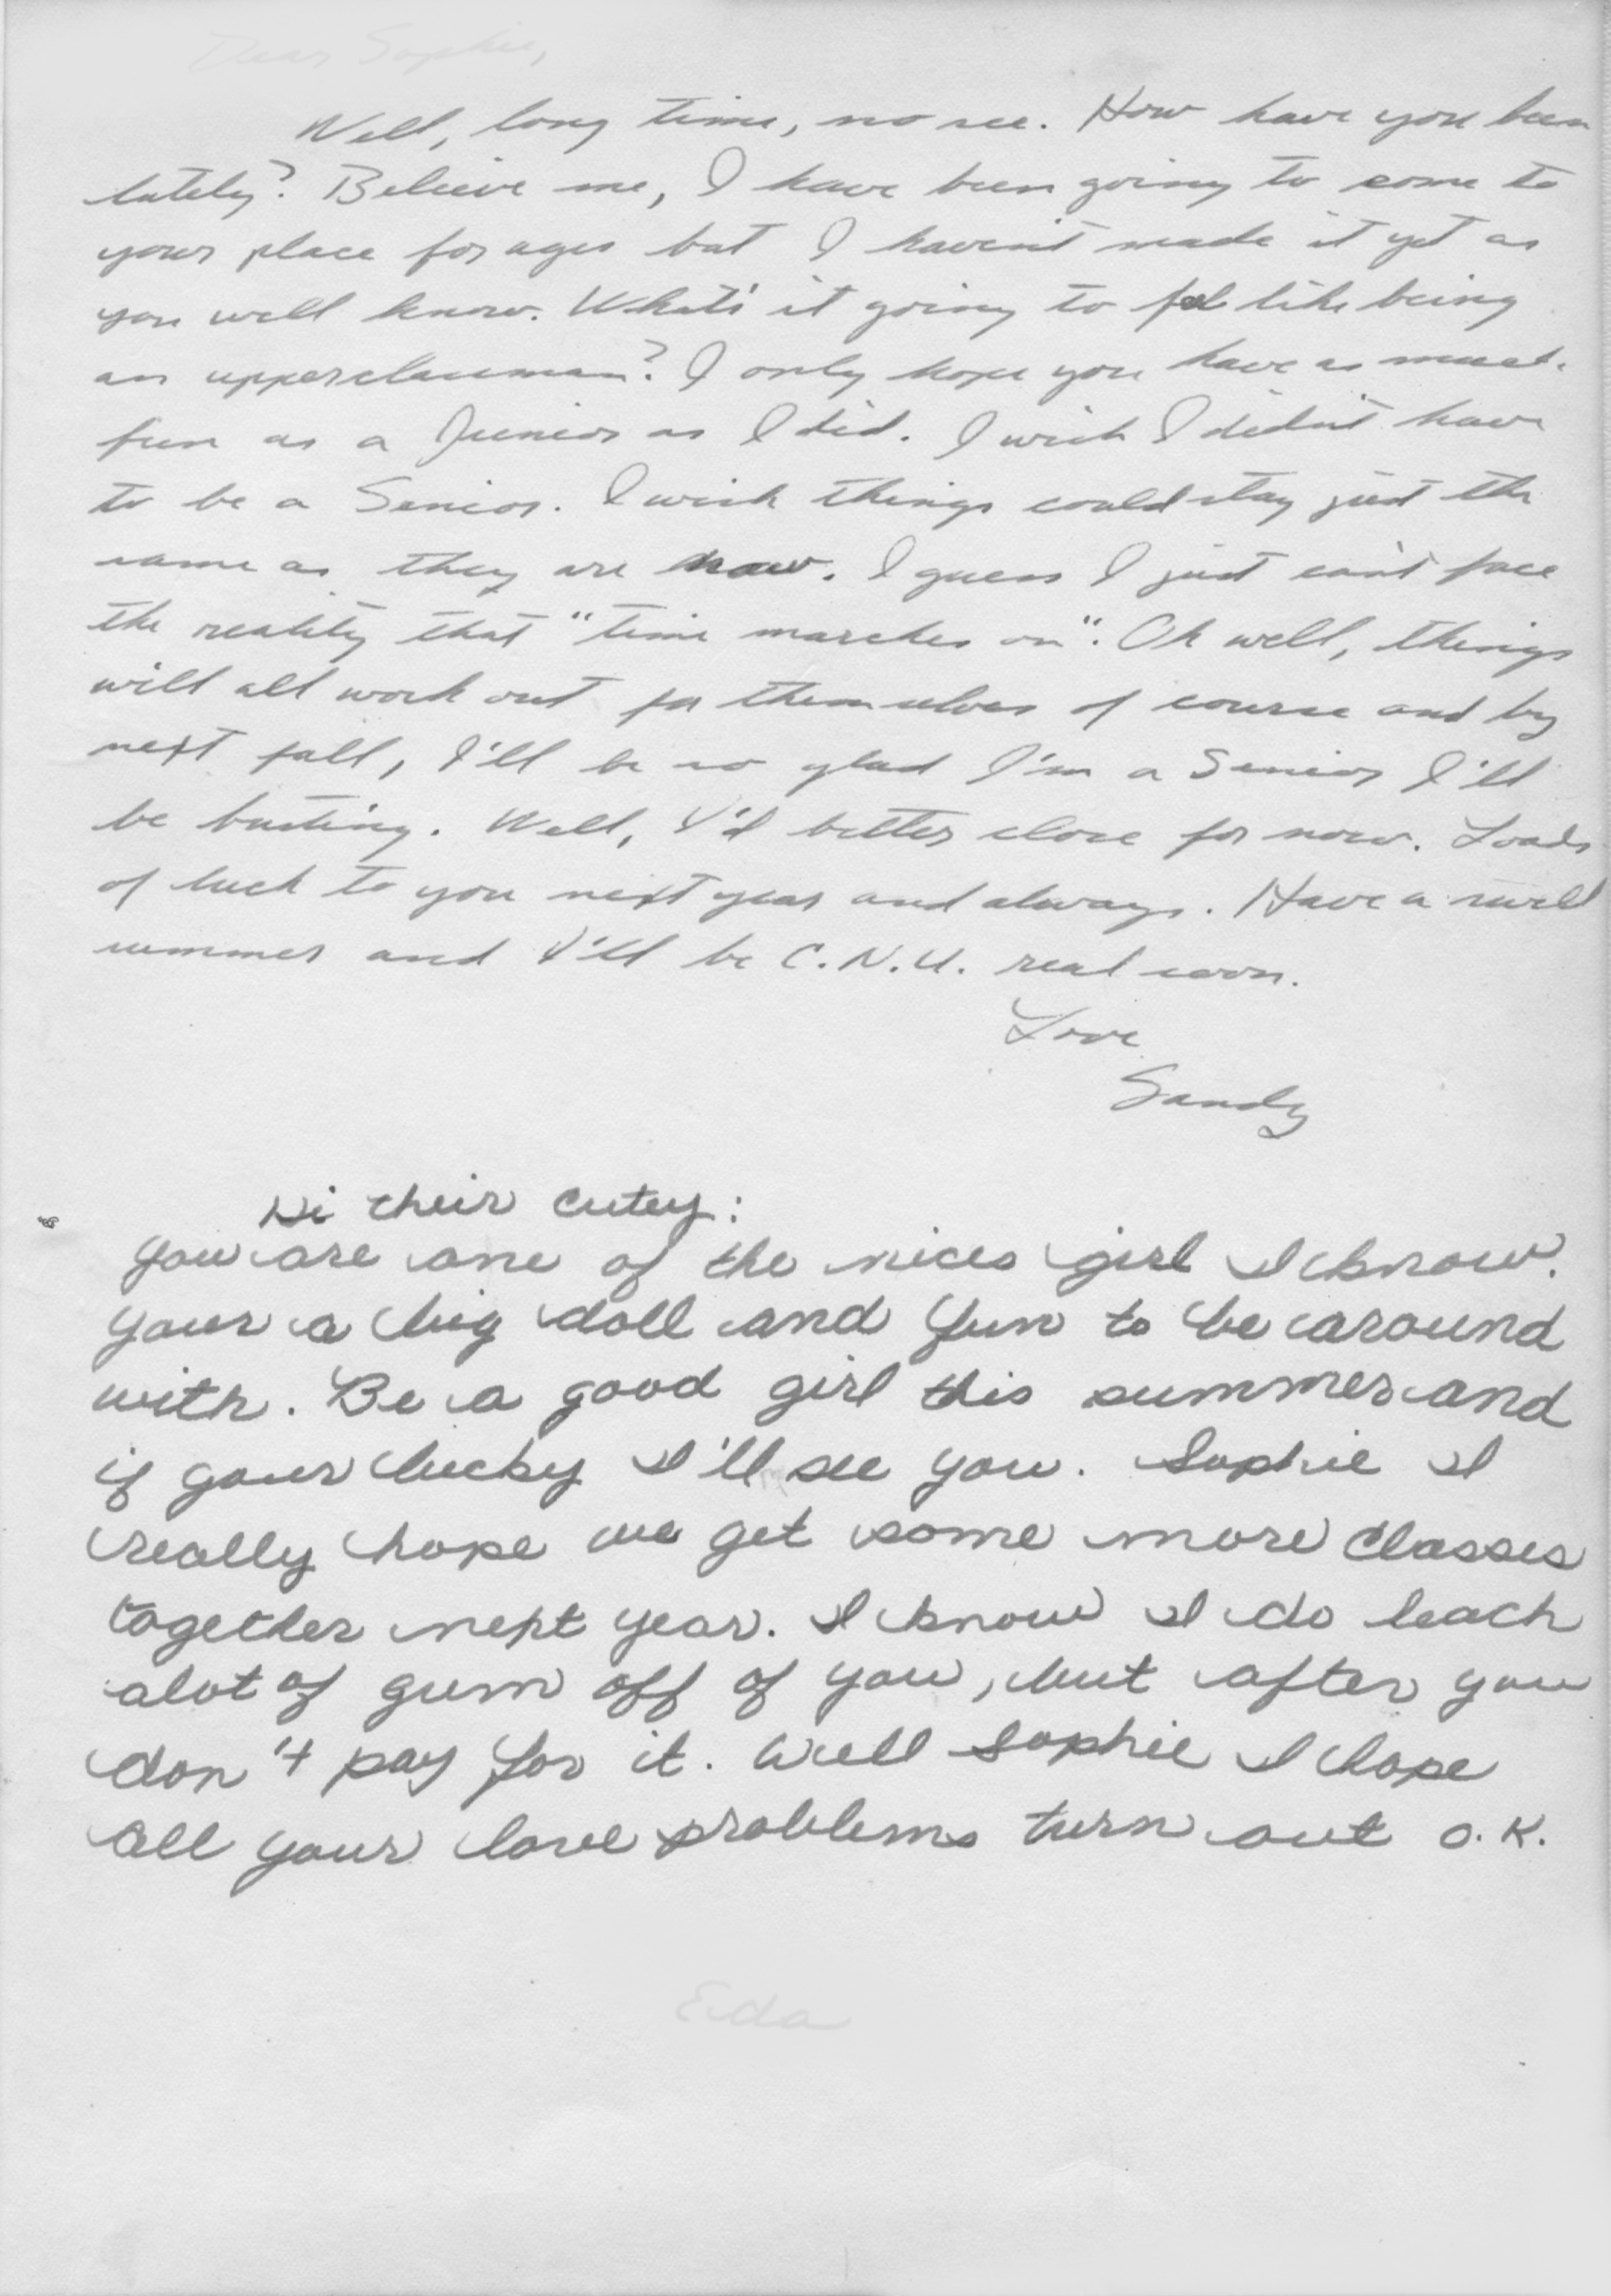 Dear Sophie,
Well, long time, no see. How have you been
lately? Believe me, I have been going to come to
your place for ages but I haven't made it yet as
you well know. What's it going to feel like being
an upperclassman? I only hope you have as much
fun as a Junior as I did. I wish I didn't have
to be a Senior. I wish things could stay just the
same as they are now. I guess I just can't face
the reality that "time marches on". Oh well, things
will all work out for themselves of course and by
next fall, I'll be so glad I'm a Senior I'll
be busting. Well, I'd better close for now. Loads
of luck to you next year and always. Have a swell
summer and I'll be C.N.U. real soon.
Love
Sandy
Hi their cutey:
You are one of the nices girl I know.
Your a big doll and fun to be around
with. Be a good girl this summer and
if your lucky I'll see you. Sophie I
really hope we get some more classes
together next year. I know I do leach
alot of gum off of you, but after you
don't pay for it. Well Sophie I hope
all your love problems turn out O.K.
Eda